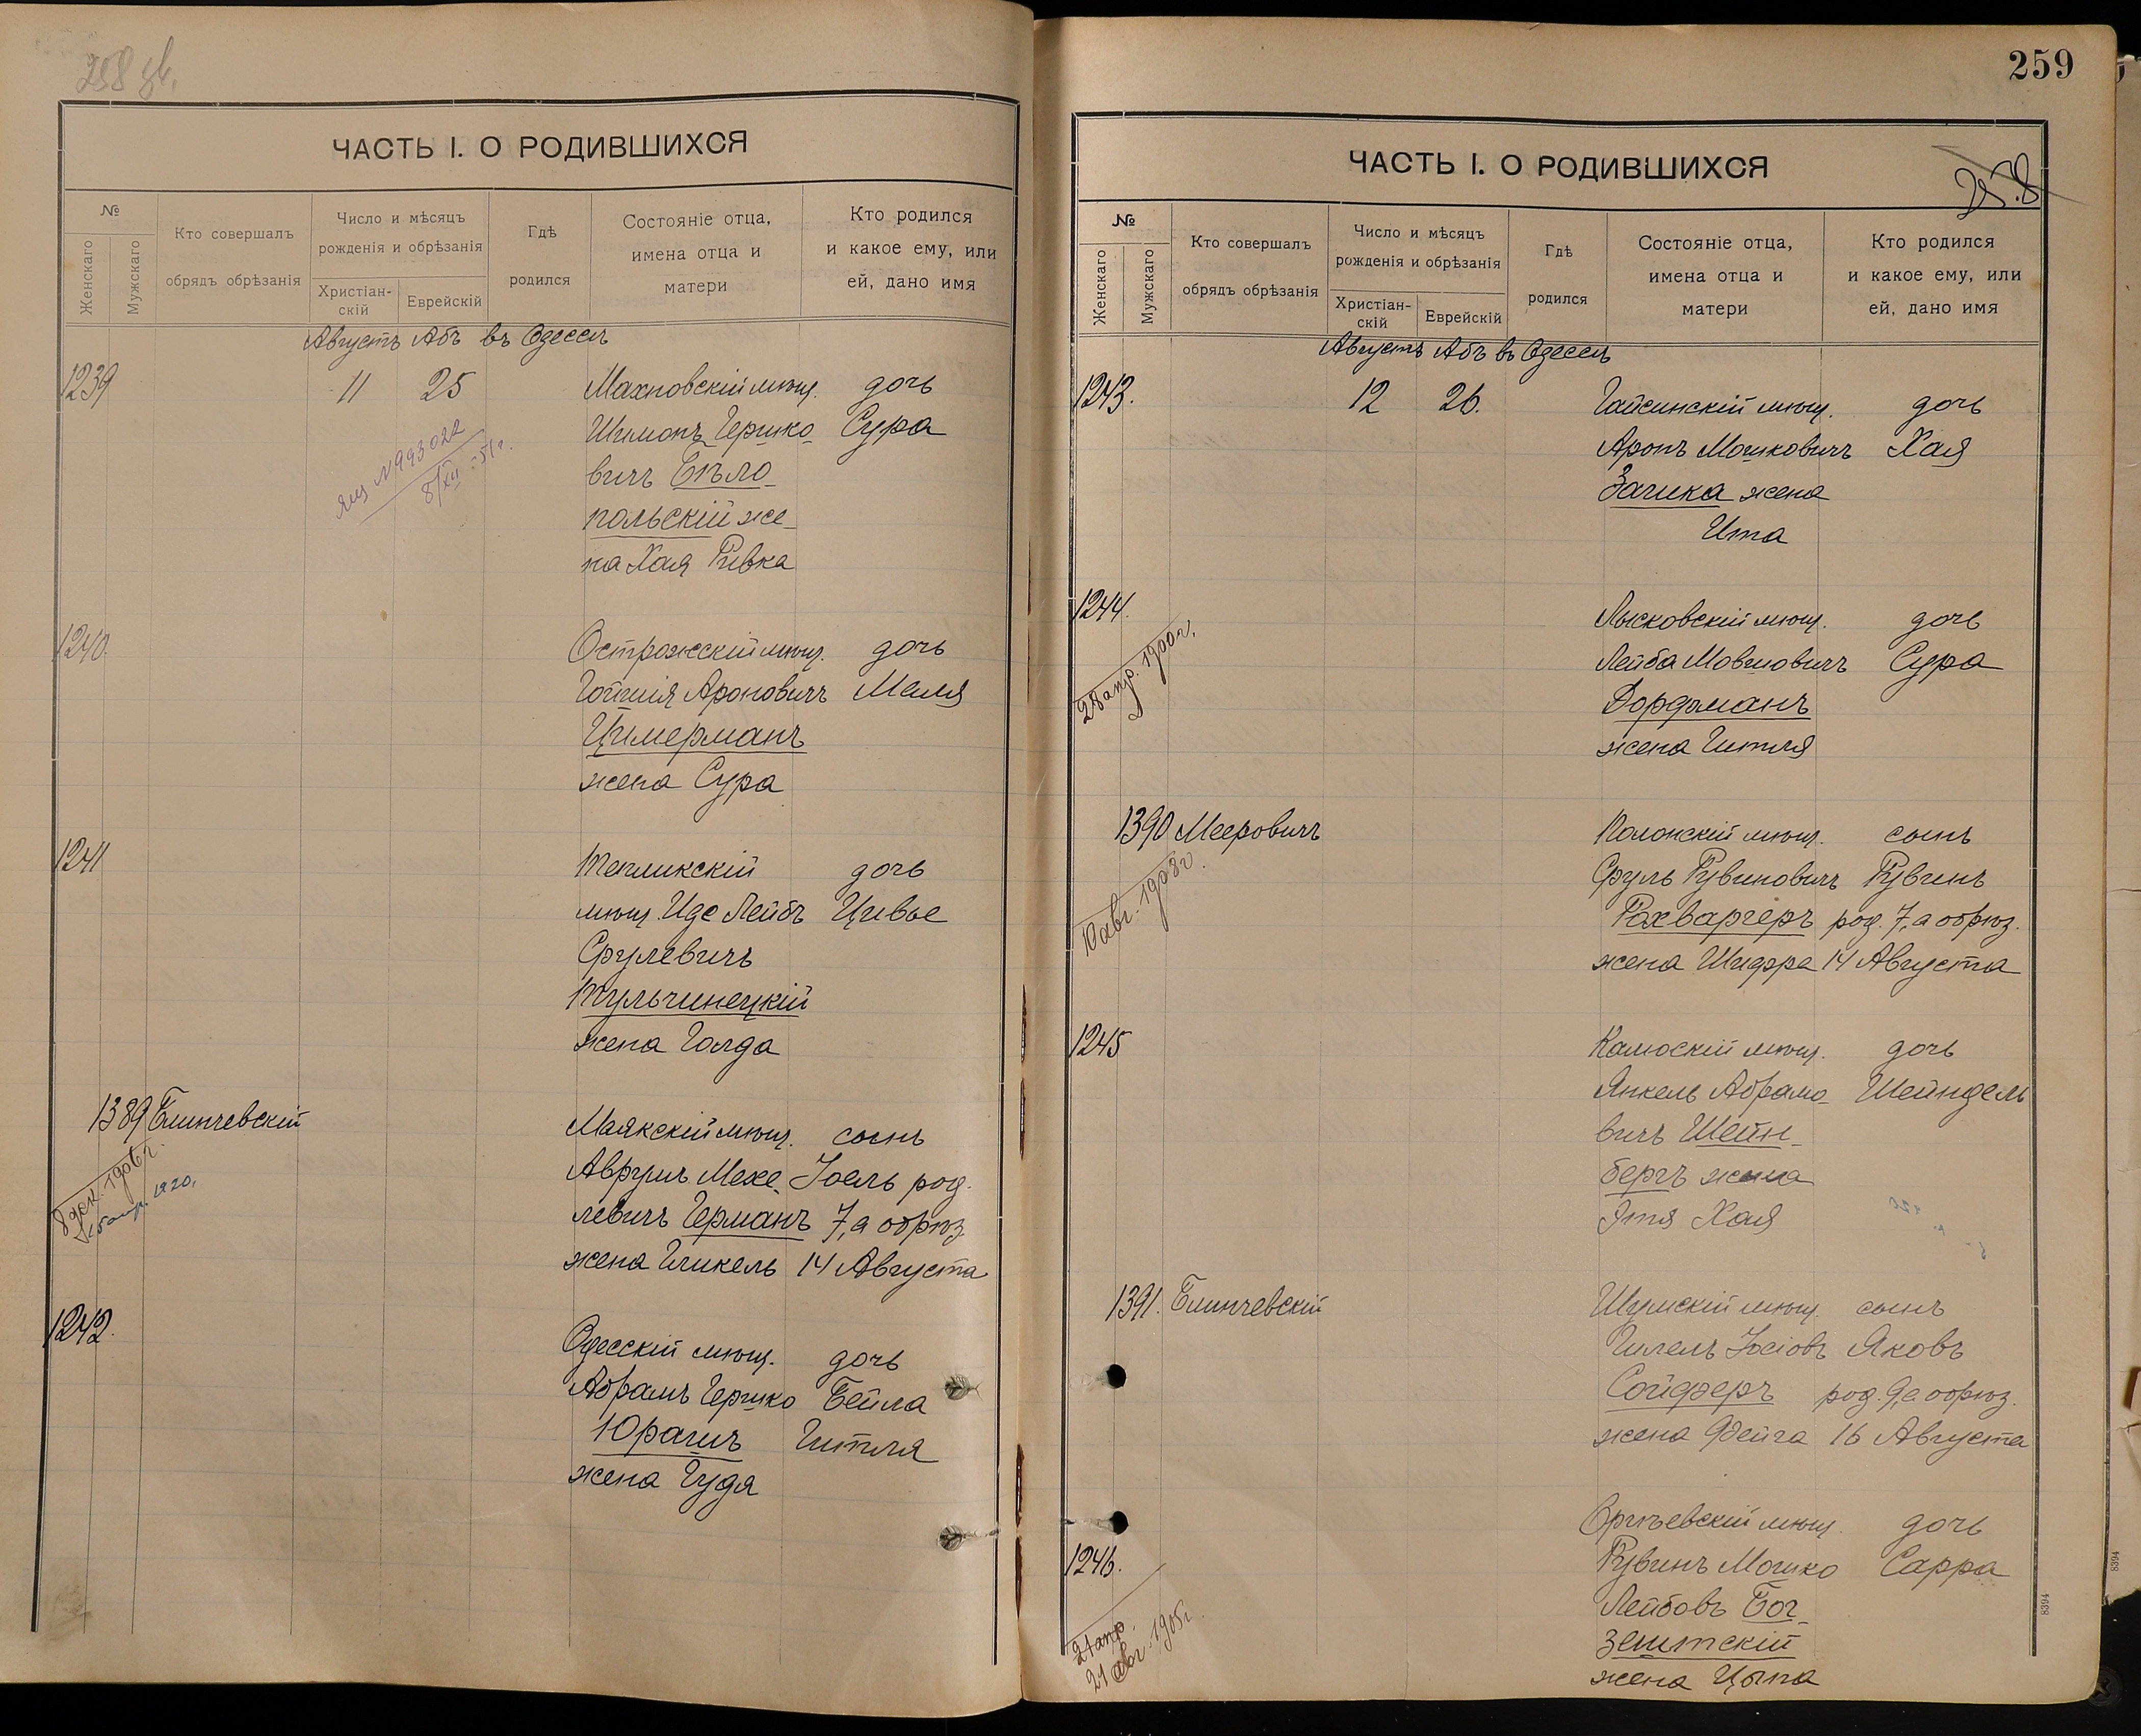 258 зв.
ЧАСТЬ I. О РОДИВШИХСЯ
№
Женскаго
Мужскаго
Кто совершалъ
обрядъ обрѣзанія
Число и мѣсяцъ
рожденія и обрѣзанія
Христіан-
скій
Еврейскій
Гдѣ
родился
Состояніе отца,
имена отца и
матери
Кто родился
и какое ему, или
ей, дано имя
Августъ Абъ въ Одессѣ
1239 11 25 Махновскій мѣщ. дочь
Шимонъ Гершко- Сура
вичъ Бѣло-
польскій же-
на Хая Ривка
N 993022
8/XII-51г.
1240. Острожскій мѣщ. дочь
Ароновичъ Маля
Цимерманъ
жена Сура
1241 Тепликскій дочь
мѣщ. Иде Лейбъ Цивье
Срулевичъ
Тульчинецкій
жена Голда
1389 Блинчевскій Маякскій мѣщ. сынъ
Аврумъ Мехе- Іоель род.
левичъ Германъ 7, а обрѣз.
жена Гликель 14 Августа
8 дек. 1906 г.
1920.
1242. Одесскій мѣщ. дочь
Абрамъ Гершко Бейла
Юрагинъ Гитля
жена Гудя
259
258
ЧАСТЬ I. О РОДИВШИХСЯ
№
Женскаго
Мужскаго
Кто совершалъ
обрядъ обрѣзанія
Число и мѣсяцъ
рожденія и обрѣзанія
Христіан-
скій
Еврейскій
Гдѣ
родился
Состояніе отца,
имена отца и
матери
Кто родился
и какое ему, или
ей, дано имя
Августъ Абъ въ Одессѣ
1243. 12 26. Гайсинскій мѣщ. дочь
Аронъ Мошковичъ Хая
Заика жена
Ита
1244. Лысковскій мѣщ. дочь
Лейба Мовшовичъ Сура
Дордманъ
жена Гитля
28 апр. 1900 г.
1390 Мееровичъ Полонскій мѣщ. сынъ
Сруль Рувиновичъ Рувинъ
Рохваргеръ род. 7, а обрѣз.
жена Шифра 14 Августа
10 авг. 1908 г.
1245 Калюскій мѣщ. дочь
Янкель Абрамо- Шейндель
вичъ Шейн-
бергъ жена
Этя Хая
1391. Блинчевскій Шумскій мѣщ. сынъ
Гилель Іосіовъ Яковъ
Сойферъ род. 9, а обрѣз.
жена Фейга 16 Августа
Оргѣевскій мѣщ. дочь
1246. Рувинъ Мошко Сарра
Лейбовъ Бог-
жена Цыпа
21 апр.
21 авг. 1905 г.
8394
8394